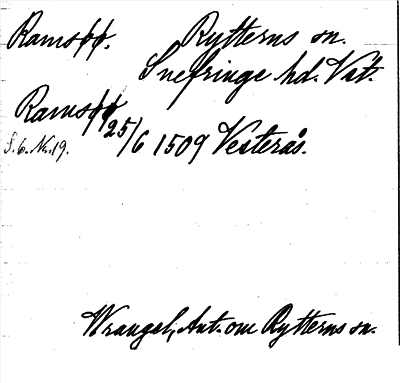 Ramsöö.
Rytterns sn.
Snefringe hd. Vstm.
Ramsöö 25/6 1509 Vesterås.
S. 6. Nr. 19.
Wrangel, Ant. om Rytterns sn.